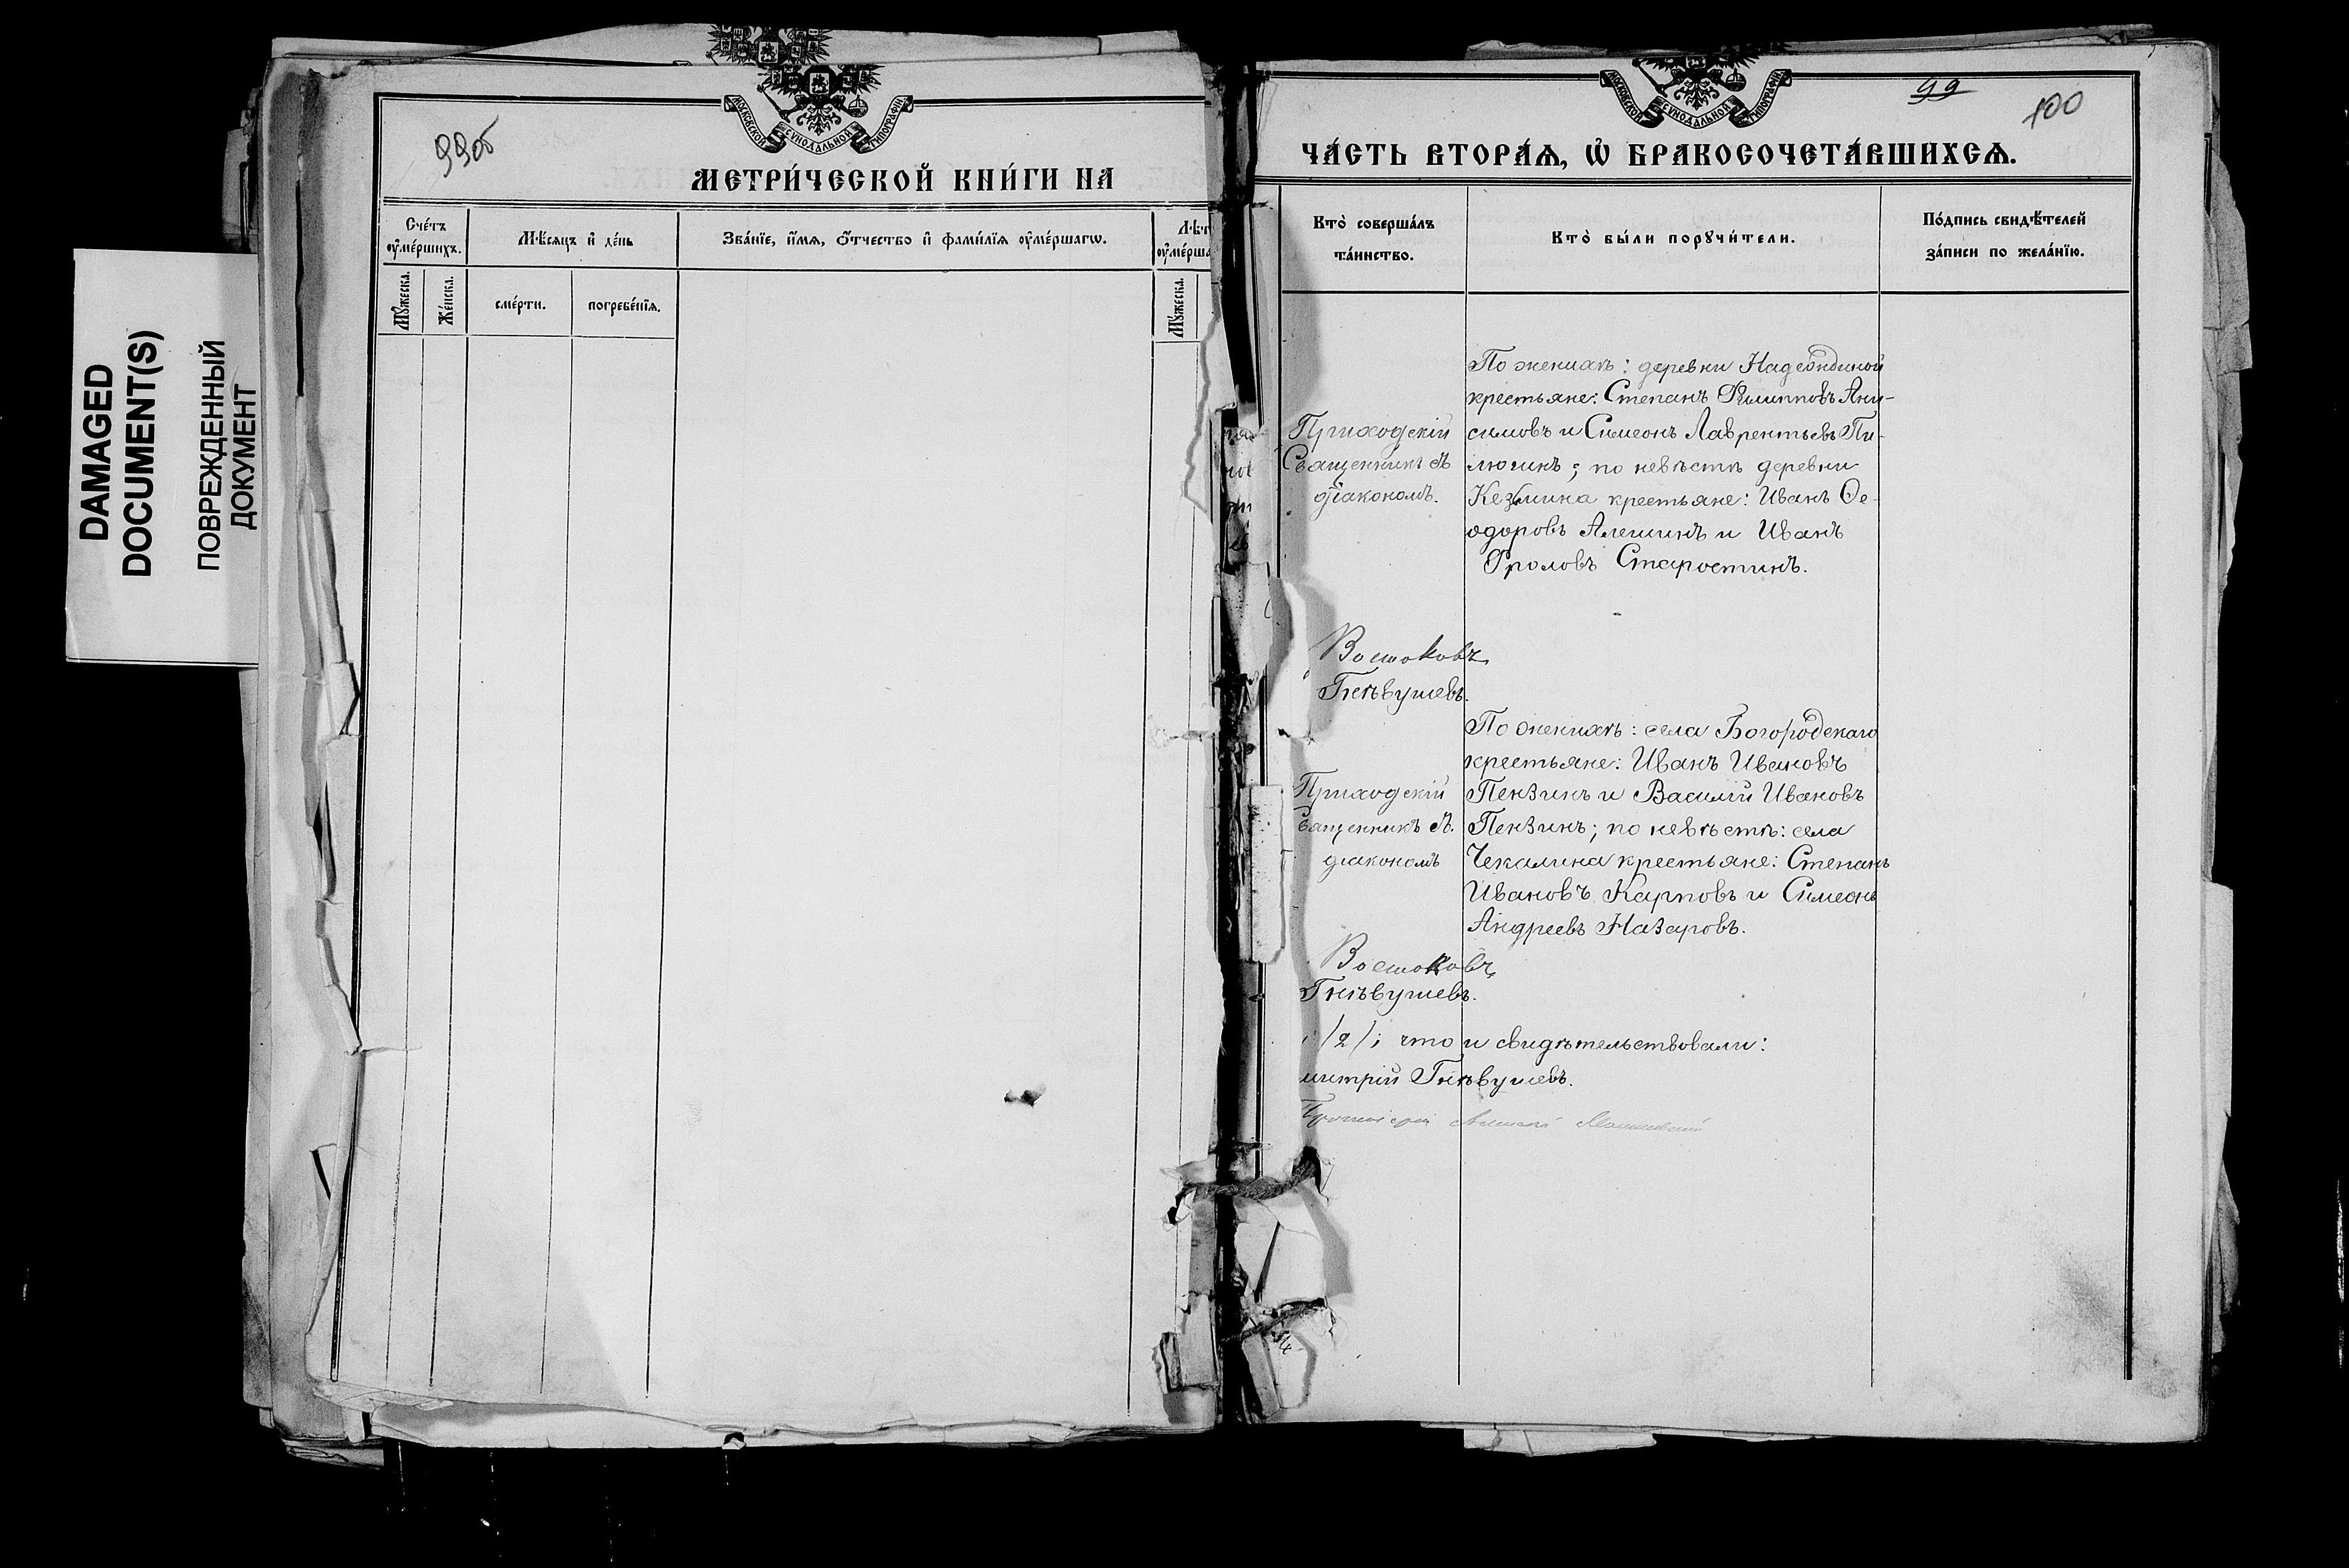 DAMAGED
DOCUMENT(S)
ПОВРЕЖДЕННЫЙ
ДОКУМЕНТ
99об
МОСКОВСКОЙ СѴНОДАЛЬНОЙ ТИПОГРАФІИ
МЕТРИ́ЧЕСКОЙ КНИ́ГИ НА
Сче́тъ
оу҆ме́ршихъ.
Мѣ́сяцъ и҆ де́нь
Зва́нїе, и҆́мѧ, ѻ҆́тчество и҆ фами́лїѧ оу҆ме́ршагѡ.
Мꙋ́жеска.
Же́нска.
сме́рти.
погребе́нїѧ.
Мꙋ́жеска.
99
100
МОСКОВСКОЙ СѴНОДАЛЬНОЙ ТИПОГРАФІИ
ЧА́СТЬ ВТОРА́Ѧ, Ѡ҆ БРАКОСОЧЕТА́ВШИХСѦ.
Кто̀ соверша́лъ
та́инство.
Кто̀ бы́ли порꙋчи́тели.
По́дпись свидѣ́телей
за́писи по жела́нїю.
По женихѣ: деревни Надеждиной
крестьяне: Степанъ Филипповъ Ани-
симовъ и Симеонъ Лаврентьевъ Пи-
люгинъ; по невѣстѣ деревни
крестьяне: Иванъ Ѳе-
одоровъ Алешинъ и Иванъ
Фроловъ Старостинъ.
Приходскій
Священникъ съ
діакономъ.
Востоковъ
Гнѣвушевъ.
По женихѣ: села Богородскаго
крестьяне: Иванъ Ивановъ
Пензинъ и Василій Ивановъ
Пензинъ; по невѣстѣ: села
Чекалина крестьяне: Степанъ
Ивановъ Карповъ и Симеонъ
Андреевъ Назаровъ.
Приходскій
Священникъ съ
діакономъ
Востоковъ
Гнѣвушевъ.
/2/; что и свидѣтельствовали:
митрій Гнѣвушевъ.
Протоіерей